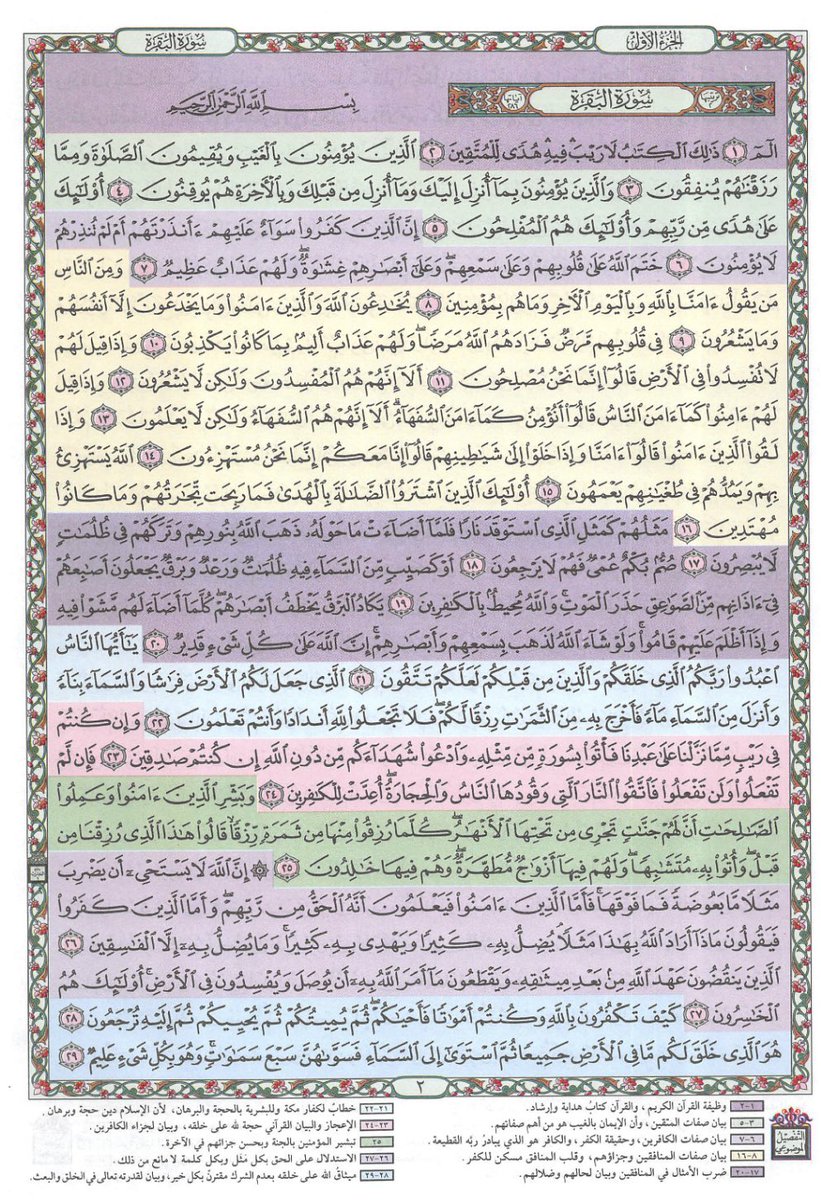 الجزء الأول
سورة البقرة
مرتيبها
سُورَةُ البَقَرَةِ
آياتها ٢٨٦
بِسْمِ ٱللَّهِ ٱلرَّحْمَٰنِ ٱلرَّحِيمِ
الٓمٓ ١ ذَٰلِكَ ٱلْكِتَٰبُ لَا رَيْبَ فِيهِ هُدًى لِّلْمُتَّقِينَ ٢ ٱلَّذِينَ يُؤْمِنُونَ بِٱلْغَيْبِ وَيُقِيمُونَ ٱلصَّلَوٰةَ وَمِمَّا
رَزَقْنَٰهُمْ يُنفِقُونَ ٣ وَٱلَّذِينَ يُؤْمِنُونَ بِمَآ أُنزِلَ إِلَيْكَ وَمَآ أُنزِلَ مِن قَبْلِكَ وَبِٱلْأَخِرَةِ هُمْ يُوقِنُونَ ٤ أُو۟لَٰٓئِكَ
عَلَىٰ هُدًى مِّن رَّبِّهِمْ وَأُو۟لَٰٓئِكَ هُمُ ٱلْمُفْلِحُونَ ٥ إِنَّ ٱلَّذِينَ كَفَرُوا۟ سَوَآءٌ عَلَيْهِمْ ءَأَنذَرْتَهُمْ أَمْ لَمْ تُنذِرْهُمْ
لَا يُؤْمِنُونَ ٦ خَتَمَ ٱللَّهُ عَلَىٰ قُلُوبِهِمْ وَعَلَىٰ سَمْعِهِمْ وَعَلَىٰٓ أَبْصَٰرِهِمْ غِشَٰوَةٌ وَلَهُمْ عَذَابٌ عَظِيمٌ ٧ وَمِنَ ٱلنَّاسِ
مَن يَقُولُ ءَامَنَّا بِٱللَّهِ وَبِٱلْيَوْمِ ٱلْأَخِرِ وَمَا هُم بِمُؤْمِنِينَ ٨ يُخَٰدِعُونَ ٱللَّهَ وَٱلَّذِينَ ءَامَنُوا۟ وَمَا يَخْدَعُونَ إِلَّآ أَنفُسَهُمْ
وَمَا يَشْعُرُونَ ٩ فِى قُلُوبِهِم مَّرَضٌ فَزَادَهُمُ ٱللَّهُ مَرَضًا وَلَهُمْ عَذَابٌ أَلِيمٌۢ بِمَا كَانُوا۟ يَكْذِبُونَ ١٠ وَإِذَا قِيلَ لَهُمْ
لَا تُفْسِدُوا۟ فِى ٱلْأَرْضِ قَالُوٓا۟ إِنَّمَا نَحْنُ مُصْلِحُونَ ١١ أَلَآ إِنَّهُمْ هُمُ ٱلْمُفْسِدُونَ وَلَٰكِن لَّا يَشْعُرُونَ ١٢ وَإِذَا قِيلَ
لَهُمْ ءَامِنُوا۟ كَمَآ ءَامَنَ ٱلنَّاسُ قَالُوٓا۟ أَنُؤْمِنُ كَمَآ ءَامَنَ ٱلسُّفَهَآءُ أَلَآ إِنَّهُمْ هُمُ ٱلسُّفَهَآءُ وَلَٰكِن لَّا يَعْلَمُونَ ١٣ وَإِذَا
لَقُوا۟ ٱلَّذِينَ ءَامَنُوا۟ قَالُوٓا۟ ءَامَنَّا وَإِذَا خَلَوْا۟ إِلَىٰ شَيَٰطِينِهِمْ قَالُوٓا۟ إِنَّا مَعَكُمْ إِنَّمَا نَحْنُ مُسْتَهْزِءُونَ ١٤ ٱللَّهُ يَسْتَهْزِئُ
بِهِمْ وَيَمُدُّهُمْ فِى طُغْيَٰنِهِمْ يَعْمَهُونَ ١٥ أُو۟لَٰٓئِكَ ٱلَّذِينَ ٱشْتَرَوُا۟ ٱلضَّلَٰلَةَ بِٱلْهُدَىٰ فَمَا رَبِحَت تِّجَٰرَتُهُمْ وَمَا كَانُوا۟
مُهْتَدِينَ ١٦ مَثَلُهُمْ كَمَثَلِ ٱلَّذِى ٱسْتَوْقَدَ نَارًا فَلَمَّآ أَضَآءَتْ مَا حَوْلَهُۥ ذَهَبَ ٱللَّهُ بِنُورِهِمْ وَتَرَكَهُمْ فِى ظُلُمَٰتٍ
لَّا يُبْصِرُونَ ١٧ صُمٌّۢ بُكْمٌ عُمْىٌ فَهُمْ لَا يَرْجِعُونَ ١٨ أَوْ كَصَيِّبٍ مِّنَ ٱلسَّمَآءِ فِيهِ ظُلُمَٰتٌ وَرَعْدٌ وَبَرْقٌ يَجْعَلُونَ أَصَٰبِعَهُمْ
فِىٓ ءَاذَانِهِم مِّنَ ٱلصَّوَٰعِقِ حَذَرَ ٱلْمَوْتِ وَٱللَّهُ مُحِيطٌۢ بِٱلْكَٰفِرِينَ ١٩ يَكَادُ ٱلْبَرْقُ يَخْطَفُ أَبْصَٰرَهُمْ كُلَّمَآ أَضَآءَ لَهُم مَّشَوْا۟ فِيهِ
وَإِذَآ أَظْلَمَ عَلَيْهِمْ قَامُوا۟ وَلَوْ شَآءَ ٱللَّهُ لَذَهَبَ بِسَمْعِهِمْ وَأَبْصَٰرِهِمْ إِنَّ ٱللَّهَ عَلَىٰ كُلِّ شَىْءٍ قَدِيرٌ ٢٠ يَٰٓأَيُّهَا ٱلنَّاسُ
ٱعْبُدُوا۟ رَبَّكُمُ ٱلَّذِى خَلَقَكُمْ وَٱلَّذِينَ مِن قَبْلِكُمْ لَعَلَّكُمْ تَتَّقُونَ ٢١ ٱلَّذِى جَعَلَ لَكُمُ ٱلْأَرْضَ فِرَٰشًا وَٱلسَّمَآءَ بِنَآءً
وَأَنزَلَ مِنَ ٱلسَّمَآءِ مَآءً فَأَخْرَجَ بِهِۦ مِنَ ٱلثَّمَرَٰتِ رِزْقًا لَّكُمْ فَلَا تَجْعَلُوا۟ لِلَّهِ أَندَادًا وَأَنتُمْ تَعْلَمُونَ ٢٢ وَإِن كُنتُمْ
فِى رَيْبٍ مِّمَّا نَزَّلْنَا عَلَىٰ عَبْدِنَا فَأْتُوا۟ بِسُورَةٍ مِّن مِّثْلِهِۦ وَٱدْعُوا۟ شُهَدَآءَكُم مِّن دُونِ ٱللَّهِ إِن كُنتُمْ صَٰدِقِينَ ٢٣ فَإِن لَّمْ
تَفْعَلُوا۟ وَلَن تَفْعَلُوا۟ فَٱتَّقُوا۟ ٱلنَّارَ ٱلَّتِى وَقُودُهَا ٱلنَّاسُ وَٱلْحِجَارَةُ أُعِدَّتْ لِلْكَٰفِرِينَ ٢٤ وَبَشِّرِ ٱلَّذِينَ ءَامَنُوا۟ وَعَمِلُوا۟
ٱلصَّٰلِحَٰتِ أَنَّ لَهُمْ جَنَّٰتٍ تَجْرِى مِن تَحْتِهَا ٱلْأَنْهَٰرُ كُلَّمَا رُزِقُوا۟ مِنْهَا مِن ثَمَرَةٍ رِّزْقًا قَالُوا۟ هَٰذَا ٱلَّذِى رُزِقْنَا مِن
قَبْلُ وَأُتُوا۟ بِهِۦ مُتَشَٰبِهًا وَلَهُمْ فِيهَآ أَزْوَٰجٌ مُّطَهَّرَةٌ وَهُمْ فِيهَا خَٰلِدُونَ ٢٥ ۞ إِنَّ ٱللَّهَ لَا يَسْتَحْىِۦٓ أَن يَضْرِبَ
مَثَلًا مَّا بَعُوضَةً فَمَا فَوْقَهَا فَأَمَّا ٱلَّذِينَ ءَامَنُوا۟ فَيَعْلَمُونَ أَنَّهُ ٱلْحَقُّ مِن رَّبِّهِمْ وَأَمَّا ٱلَّذِينَ كَفَرُوا۟
فَيَقُولُونَ مَاذَآ أَرَادَ ٱللَّهُ بِهَٰذَا مَثَلًا يُضِلُّ بِهِۦ كَثِيرًا وَيَهْدِى بِهِۦ كَثِيرًا وَمَا يُضِلُّ بِهِۦٓ إِلَّا ٱلْفَٰسِقِينَ ٢٦
ٱلَّذِينَ يَنقُضُونَ عَهْدَ ٱللَّهِ مِنۢ بَعْدِ مِيثَٰقِهِۦ وَيَقْطَعُونَ مَآ أَمَرَ ٱللَّهُ بِهِۦٓ أَن يُوصَلَ وَيُفْسِدُونَ فِى ٱلْأَرْضِ أُو۟لَٰٓئِكَ هُمُ
ٱلْخَٰسِرُونَ ٢٧ كَيْفَ تَكْفُرُونَ بِٱللَّهِ وَكُنتُمْ أَمْوَٰتًا فَأَحْيَٰكُمْ ثُمَّ يُمِيتُكُمْ ثُمَّ يُحْيِيكُمْ ثُمَّ إِلَيْهِ تُرْجَعُونَ ٢٨
هُوَ ٱلَّذِى خَلَقَ لَكُم مَّا فِى ٱلْأَرْضِ جَمِيعًا ثُمَّ ٱسْتَوَىٰٓ إِلَى ٱلسَّمَآءِ فَسَوَّىٰهُنَّ سَبْعَ سَمَٰوَٰتٍ وَهُوَ بِكُلِّ شَىْءٍ عَلِيمٌ ٢٩
٢
التفصيل الموضوعي
١-٢ وظيفة القرآن الكريم، والقرآن كتابُ هداية وإرشاد.
٣-٥ بيان صفات المتّقين، وأن الإيمان بالغيب هو من أهم صفاتهم.
٦-٧ بيان صفات الكافرين، وحقيقة الكفر، والكافر هو الذي يبادرُ ربَّه القطيعة.
٨-١٦ بيان صفات المنافقين وجزاؤهم، وقلب المنافق مسكن للكفر.
١٧-٢٠ ضرب الأمثال في المنافقين وبيان لحالهم وضلالهم.
٢١-٢٢ خطابٌ لكفار مكة وللبشرية بالحجة والبرهان، لأن الإسلام دين حجة وبرهان.
٢٣-٢٤ الإعجاز والبيان القرآني حجة لله على خلقه، وبيان لجزاء الكافرين.
٢٥ تبشير المؤمنين بالجنة وبحسن جزائهم في الآخرة.
٢٦-٢٧ الاستدلال على الحق بكل مَثَل وبكل كلمة لا مانع من ذلك.
٢٨-٢٩ ميثاقُ الله على خلقه بعدم الشرك مقترنٌ بكل خير، وبيان لقدرته تعالى في الخلق والبعث.